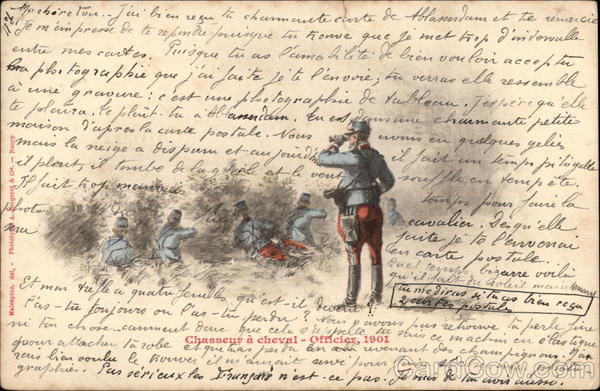 Ma chère Lou. J'ai bien reçu ta charmante carte de et te remercie
Je m'empresse de te répondre puisque tu trouve que je met trop d'intervalle
entre mes cartes. Puisque tu as l'amabilité de bien vouloir accepter
la photographie que j'ai faite je te l'envoie, tu verras elle ressemble
à une gravure; c'est une photographie de tableau. J'espère qu'elle
te plaira. Te plait tu à Tu es dans une charmante petite
maison d'après la carte postale. Nous avons eu quelques gelées
mais la neige a disparu et aujourd il fait un temps épouvantable
il pleut, il tombe de la grêle et le vent souffle en tempête.
Il fait trop mauvais temps pour faire la
photo cavalier. Dès qu'elle
sera faite je te l'enverrai
en carte postale.
Quel temps bizarre voilà
qu'il fait du soleil maintenant
tu me diras si tu as bien reçu
2 cartes postales
Et mon trèfle à quatre feuilles qu'est-il devenu?
L'as-tu toujours ou l'as-tu perdu? Nous n'avons pas retrouvé ta perle fine
ni ta chose comment donc que cela s'appelle tu sais ce machin en élastique
pour attacher ta robe et que tu as perdu en revenant des champignons.
bien voulu le trouver il m'aurait servi pour
Pas sérieux les Français n'est-ce pas. Je
Chasseur à cheval - Officier, 1901
Malespina, del. - Phototypie A. Bergeret & Cie. - Nancy
CardCow.com